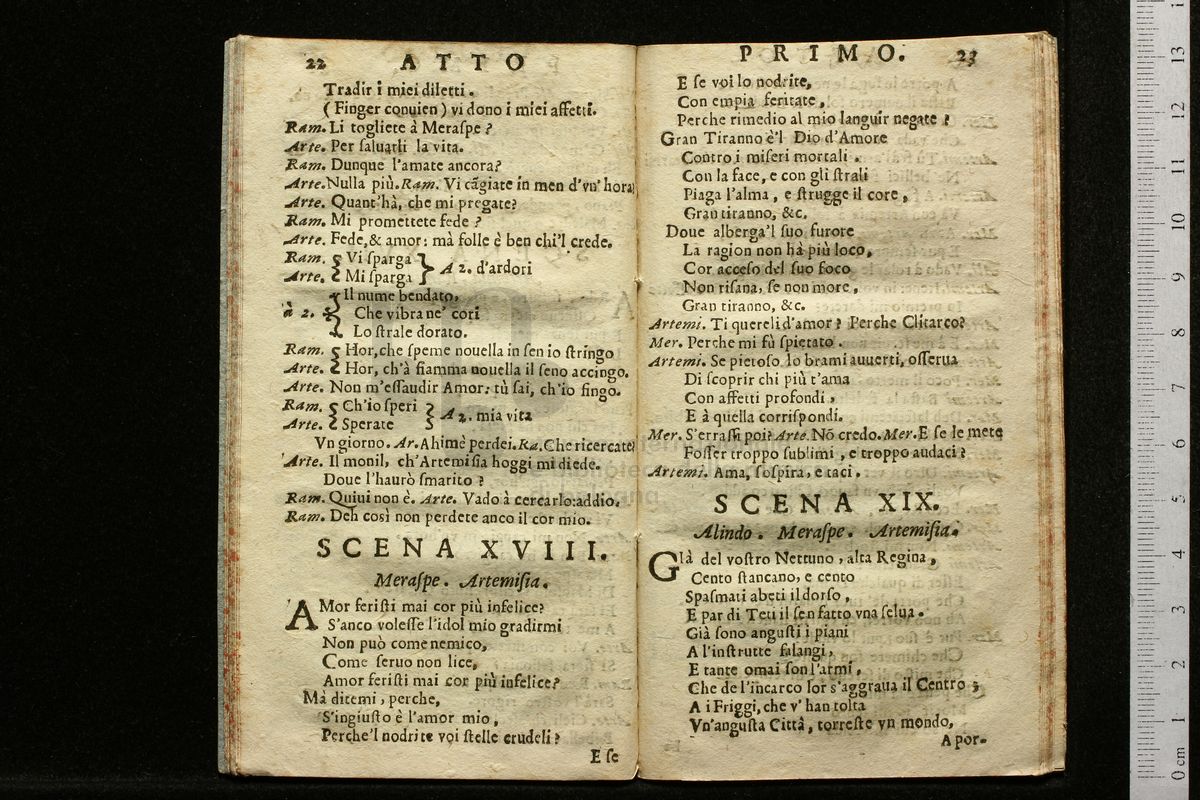 22 ATTO
Tradir i miei diletti.
(Finger conuien) vi dono i miei affetti.
Ram. Li togliete à Meraspe?
Arte. Per saluarli la vita.
Ram. Dunque l'amate ancora?
Arte. Nulla più. Ram. Vi cãgiate in men d'vn' hora
Arte. Quant'hà, che mi pregate?
Ram. Mi promettete fede?
Arte. Fede, & amor: mà folle è ben chi'l crede.
Ram. Vi sparga
Arte. Mi sparga } A 2. d'ardori
Il nume bendato,
à 2. Che vibra ne' cori
Lo strale dorato.
Ram. Hor, che speme nouella in sen io stringo
Arte. Hor, ch'à fiamma nouella il seno accingo.
Arte. Non m'essaudir Amor: tù sai, ch'io fingo.
Ram. Ch'io speri
Arte. Sperate } A 2. mia vita
Vn giorno. Ar. Ahimè perdei. Ra. Che ricercate
Arte. Il monil, ch'Artemisia hoggi mi diede.
Doue l'haurò smarito?
Ram. Quiui non è. Arte. Vado à cercarlo: addio.
Ram. Deh così non perdete anco il cor mio.
SCENA XVIII.
Meraspe. Artemisia.
AMor feristi mai cor più infelice?
S'anco volesse l'idol mio gradirmi
Non può come nemico,
Come seruo non lice,
Amor feristi mai cor più infelice?
Mà ditemi, perche,
S'ingiusto è l'amor mio,
Perche'l nodrite voi stelle crudeli?
E se
PRIMO. 23
E se voi lo nodrite,
Con empia feritate,
Perche rimedio al mio languir negate?
Gran Tiranno è'l Dio d'Amore
Contro i miseri mortali.
Con la face, e con gli strali
Piaga l'alma, e strugge il core,
Gran tiranno, &c.
Doue alberga'l suo furore
La ragion non hà più loco,
Cor acceso del suo foco
Non risana, se non more,
Gran tiranno, &c.
Artemi. Ti quereli d'amor? Perche Clitarco?
Mer. Perche mi fù spietato.
Artemi. Se pietoso lo brami auuerti, osserua
Di scoprir chi più t'ama
Con affetti profondi,
E à quella corrispondi.
Mer. S'errassi poi? Arte. Nõ credo. Mer. E se le mete
Fosser troppo sublimi, e troppo audaci?
Artemi. Ama, sospira, e taci.
SCENA XIX.
Alindo. Meraspe. Artemisia.
GIà del vostro Nettuno, alta Regina,
Cento stancano, e cento
Spalmati abeti il dorso,
E par di Teti il sen fatto vna selua.
Già sono angusti i piani
A l'instrutte falangi,
E tante omai son l'armi,
Che de l'incarco lor s'aggraua il Centro;
A i Friggi, che v' han tolta
Vn'angusta Città, torreste vn mondo,
A por-